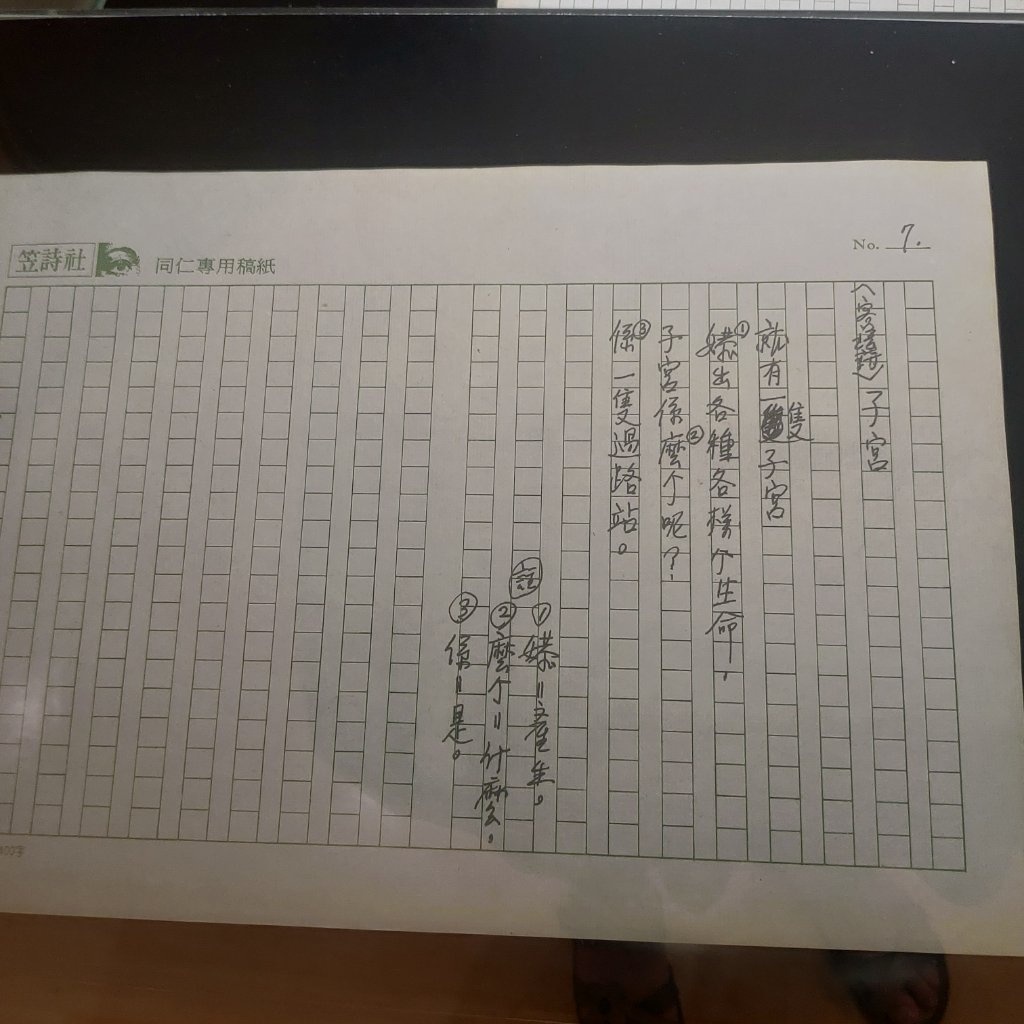 No. 7.
笠詩社 同仁專用稿紙
(客語詩)子宮
就有一隻子宮
①㜮出各種各樣个生命，
子宮係②麼个呢？
③係一隻過路站。
註
①㜮＝產生。
②麼个＝什麼。
③係＝是。